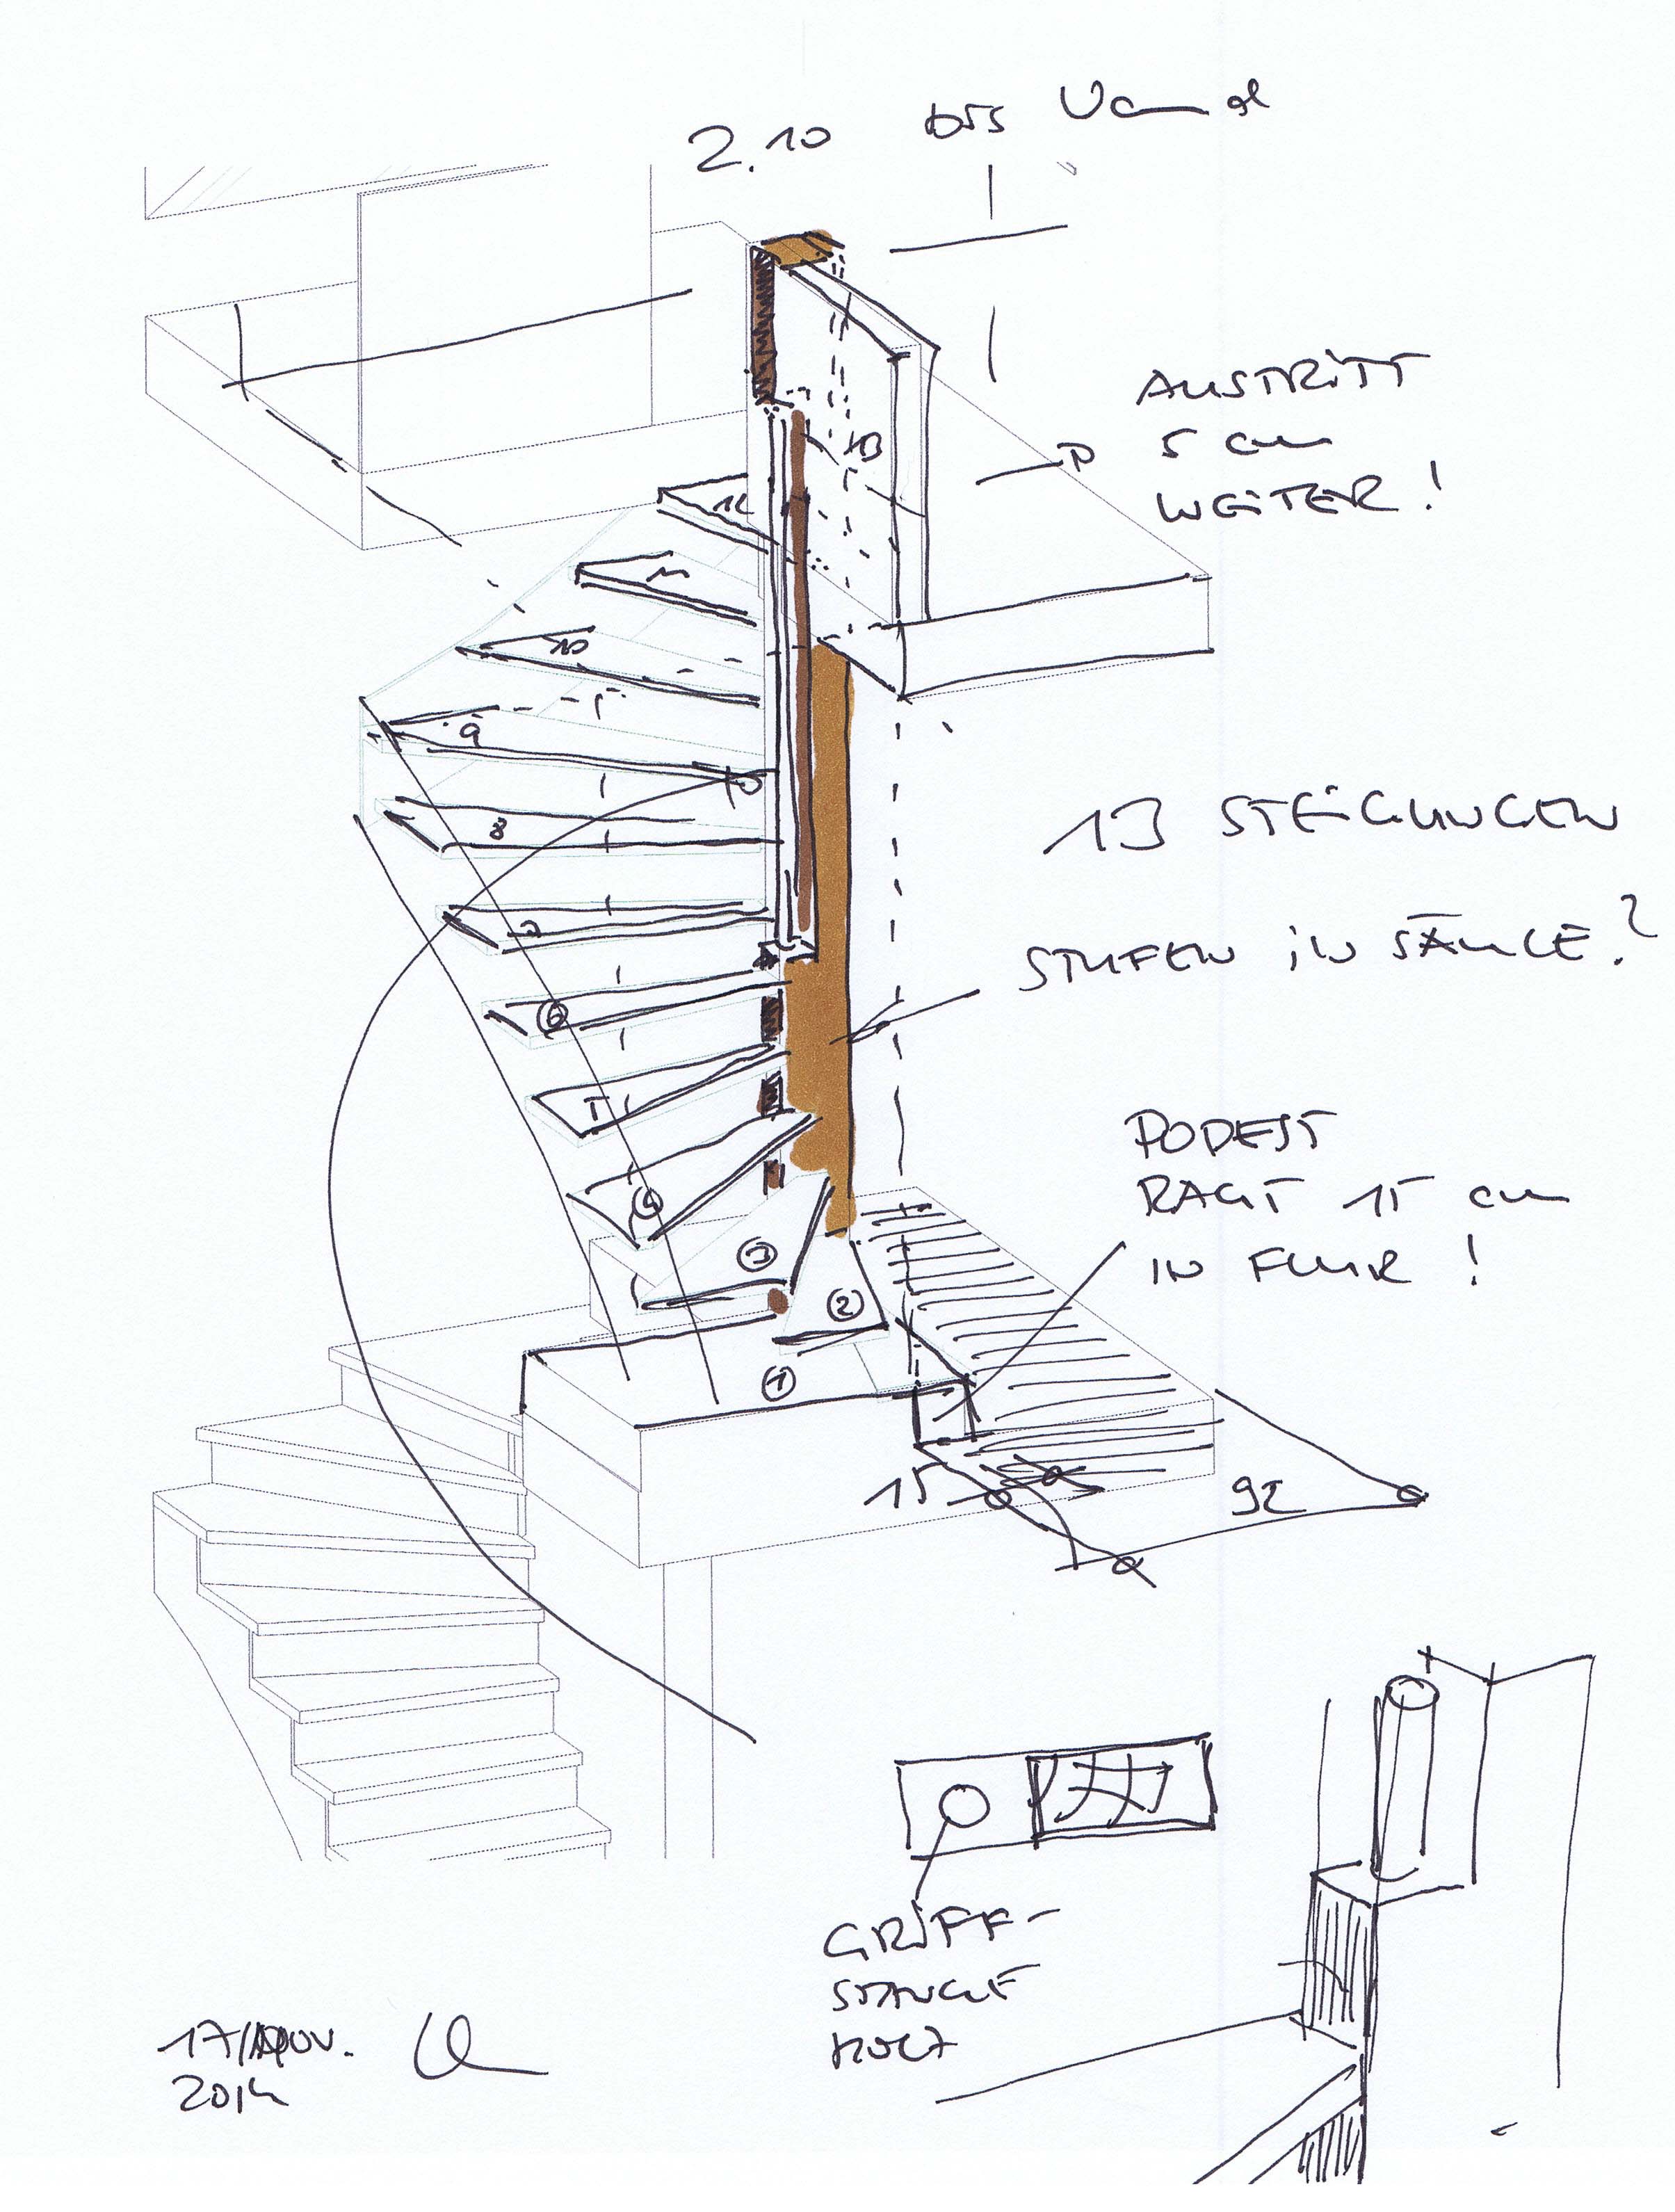 2.10 bis
AUSTRITT
5 cm
WEITER!
13
12
11
10
9
8
7
6
5
4
3
2
1
13 STEIGUNGEN
STUFEN IN SÄULE?
PODEST
RAGT 15 cm
IN FLUR!
15
92
GRIFF-
STANGE
HOLZ
17/NOV.
2014